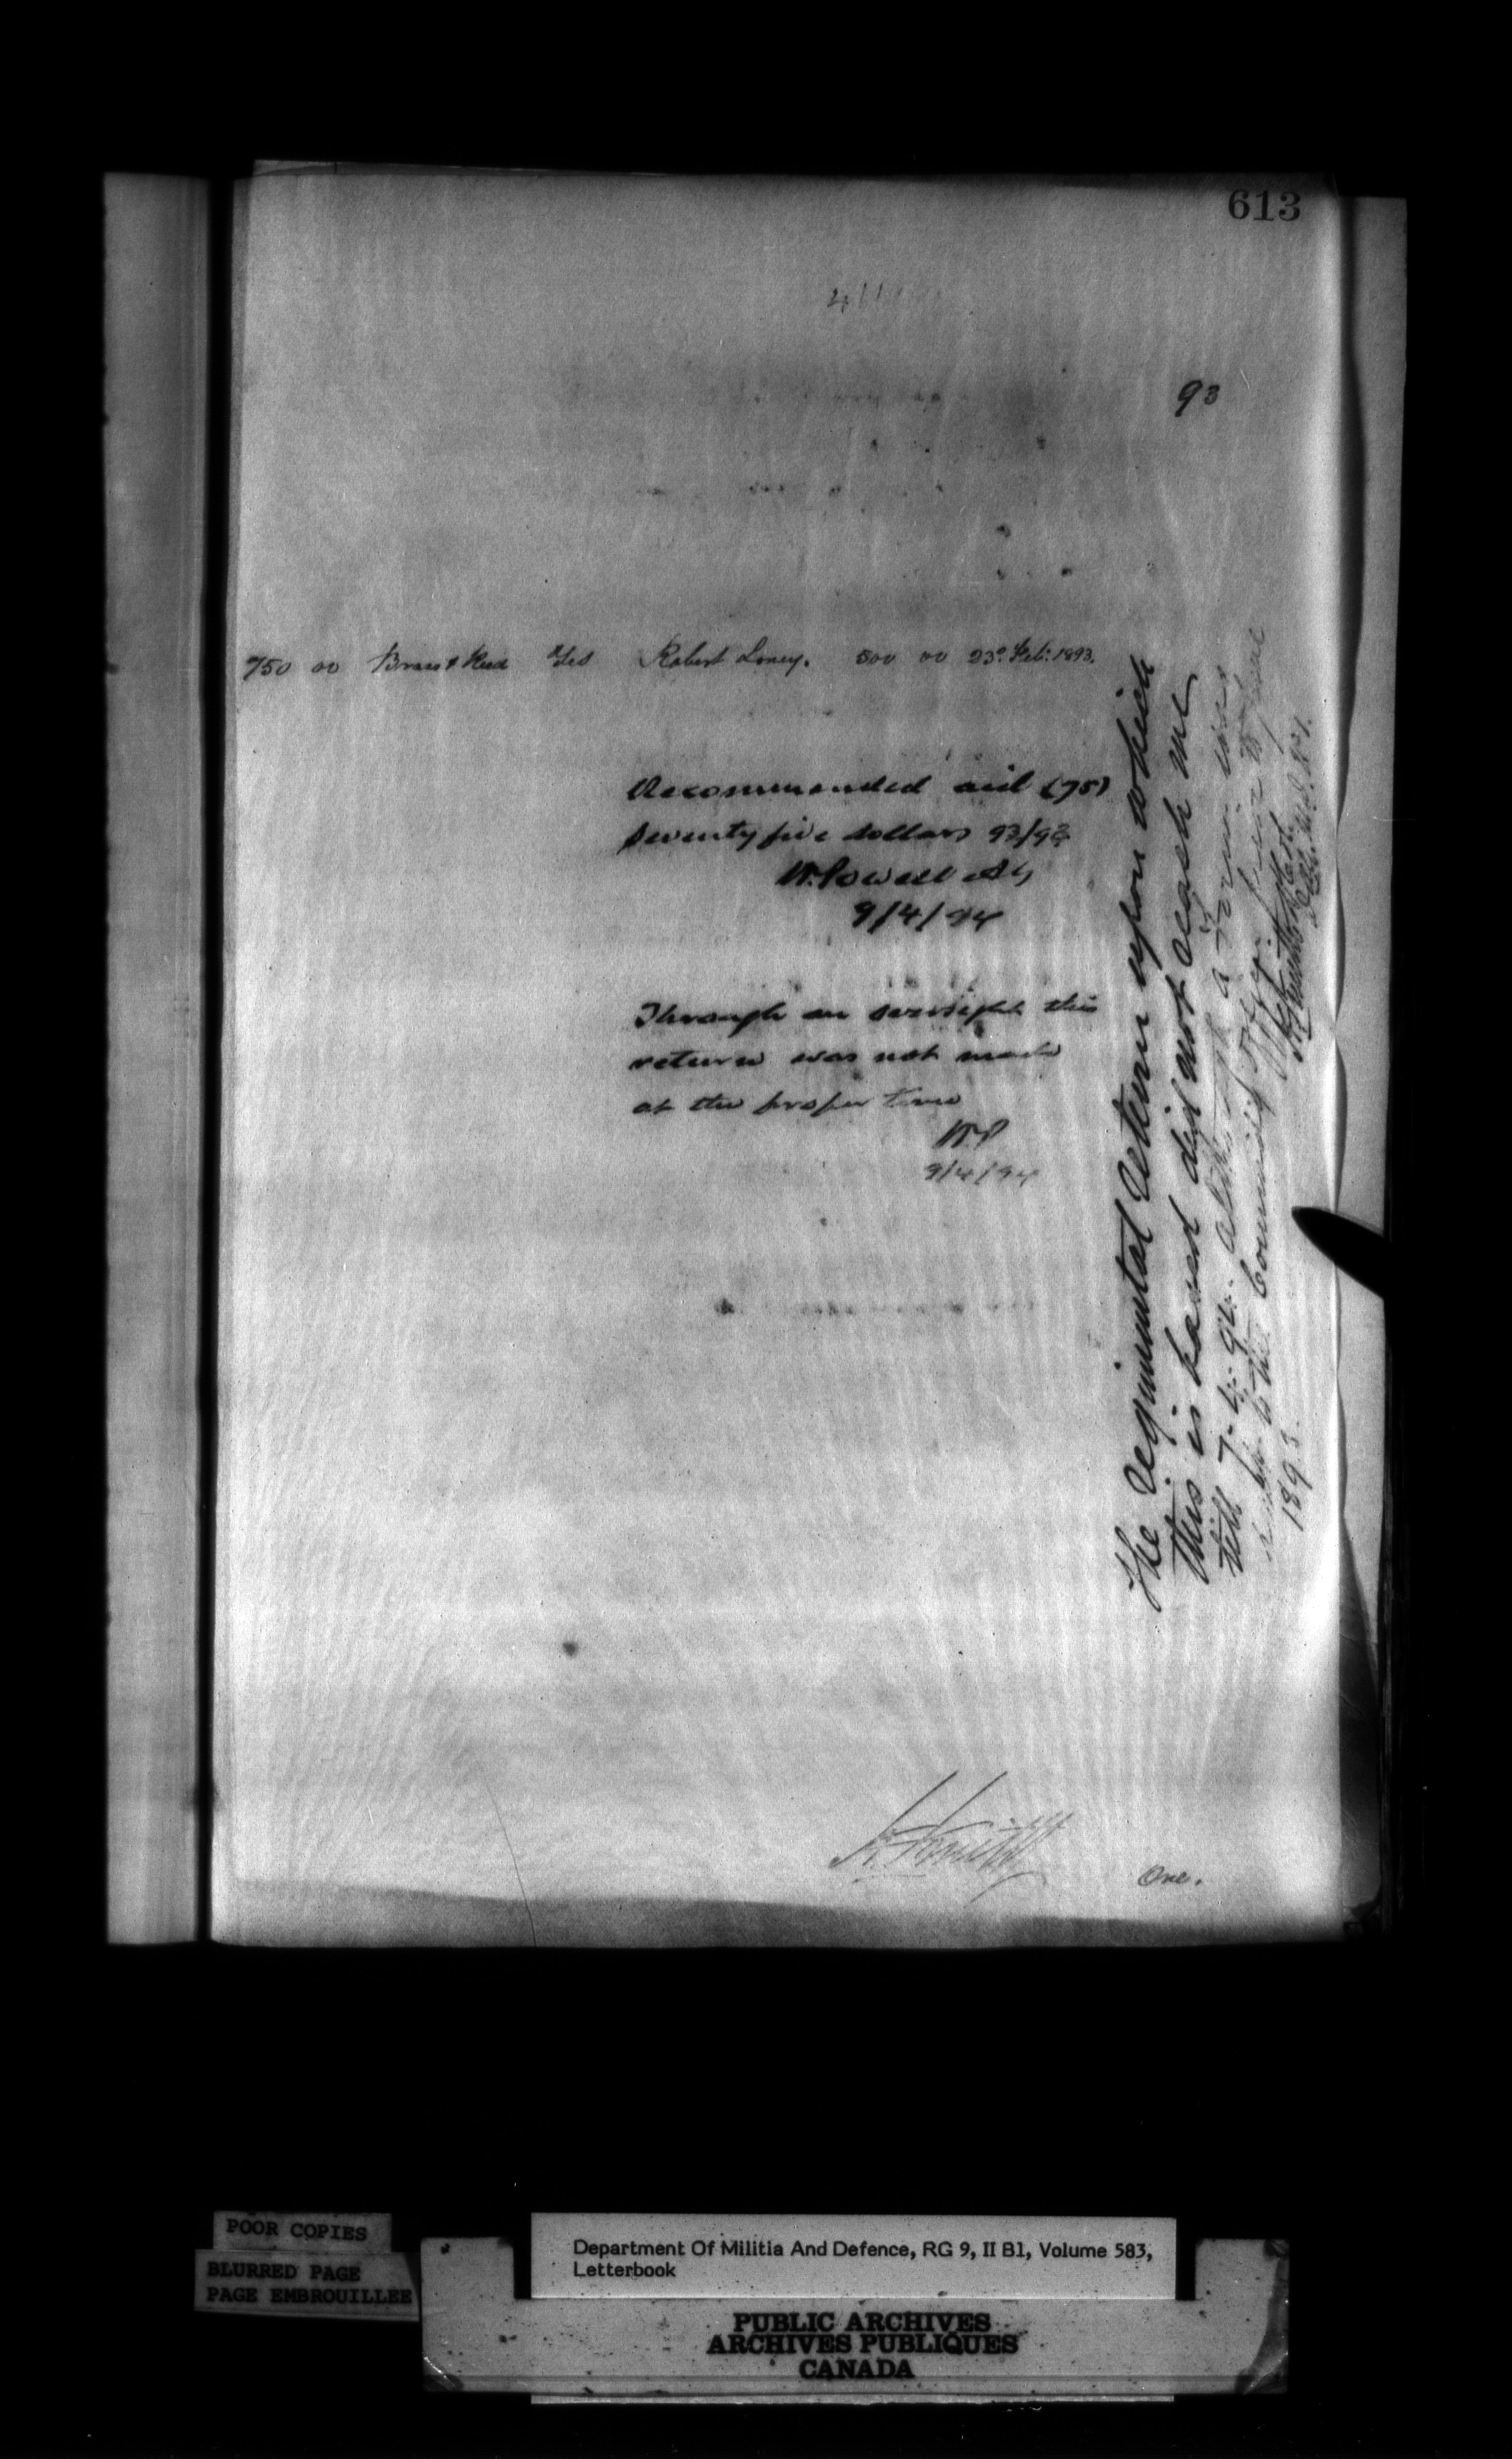 613
93
750 00 Brass & Reed Yes Robert Loney. 500 00 23d. Feb: 1893.
Recommended aid (75)
Seventy five dollars 93/93
W. Powell AG
9/4/94
Through an oversight this
return was not made
at the proper time
WP
9/4/94
The regimental return upon which
this is based did not reach me
till 7-4-94. although a form was
to the Commanding Officer
1893.
One.
POOR COPIES
BLURRED PAGE
PAGE EMBROUILLEE
Department Of Militia And Defence, RG 9, II B1, Volume 583,
Letterbook
PUBLIC ARCHIVES
ARCHIVES PUBLIQUES
CANADA